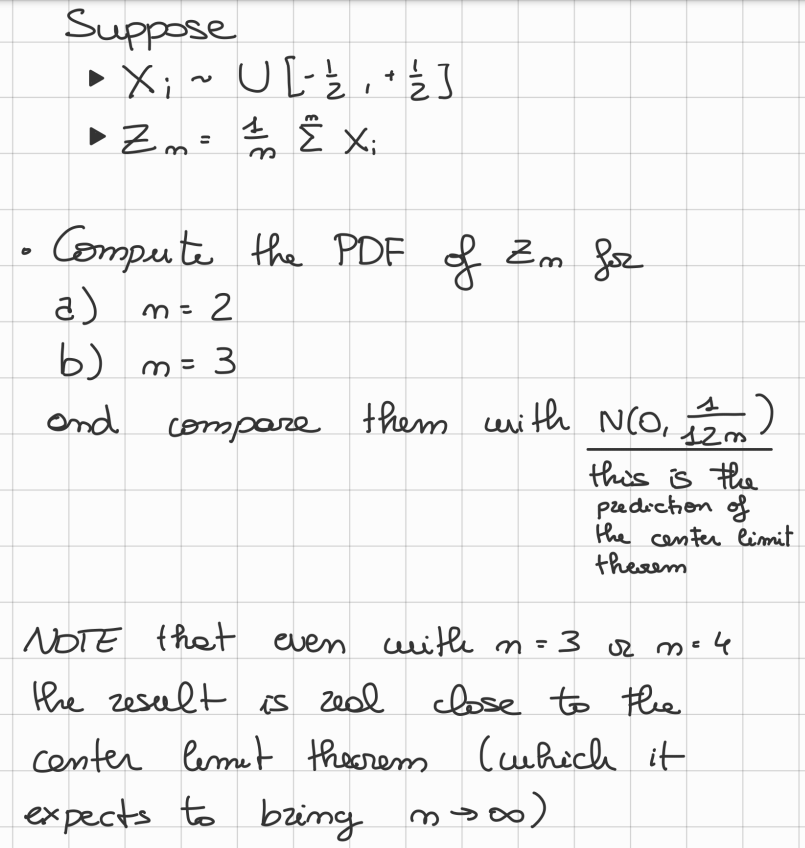 Suppose
▶ Xᵢ ~ U [-1/2, +1/2]
▶ Zₙ = 1/n Σⁿ Xᵢ
• Compute the PDF of Zₙ for
a) n = 2
b) n = 3
and compare them with N(0, 1/12n)
this is the
prediction of
the center limit
theorem
NOTE that even with n = 3 or n = 4
the result is real close to the
center limit theorem (which it
expects to bring n → ∞)